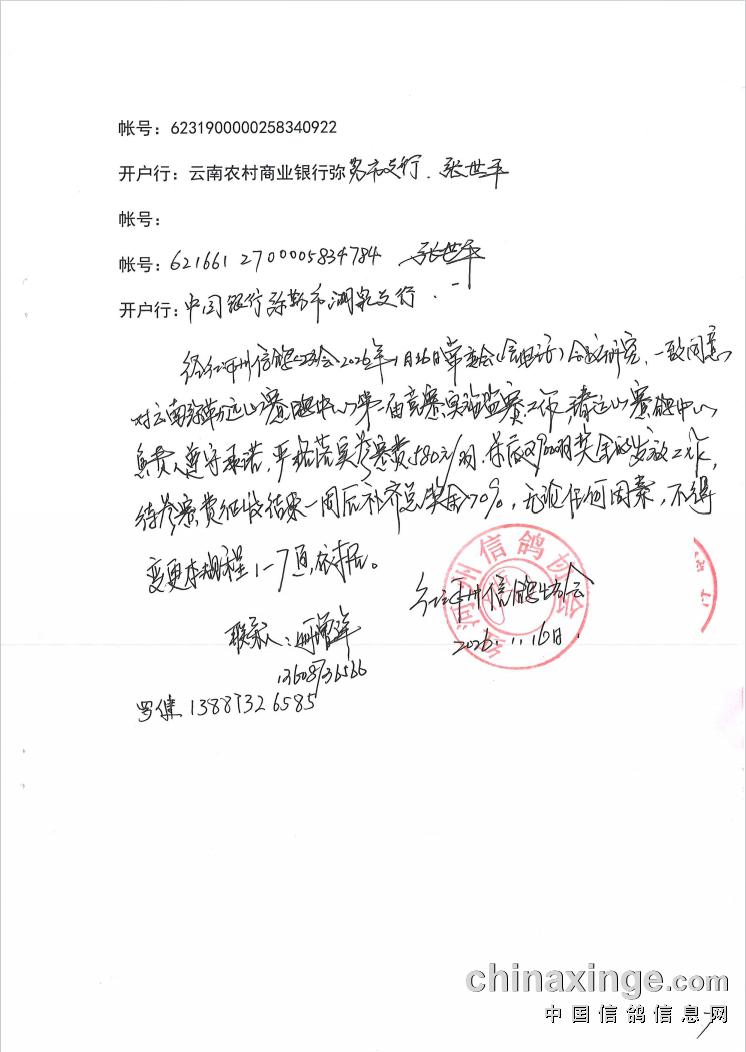 帐号：6231900000258340922
开户行：云南农村商业银行弥勒市支行．张世平
帐号：
帐号：621661 2700005834784 张世平
开户行：中国银行弥勒市湖泉支行．
经红河州信鸽协会2026年1月16日常委会(信电话)会议研究，一致同意
对云南弥勒远山赛鸽中心第二届竞赛实施监赛工作，请远山赛鸽中心
负责人遵守承诺，严格落实参赛费580元/羽，奖金的发放工作，
待参赛费征收结束一周后补齐总奖金70%，无论任何因素，不得
变更本规程1-7页，依据。
红河州信鸽协会
联系人：
2026.1.16日.
13608736566
罗健 13887326585
红河州信鸽协会
chinaxinge.com
中国信鸽信息网